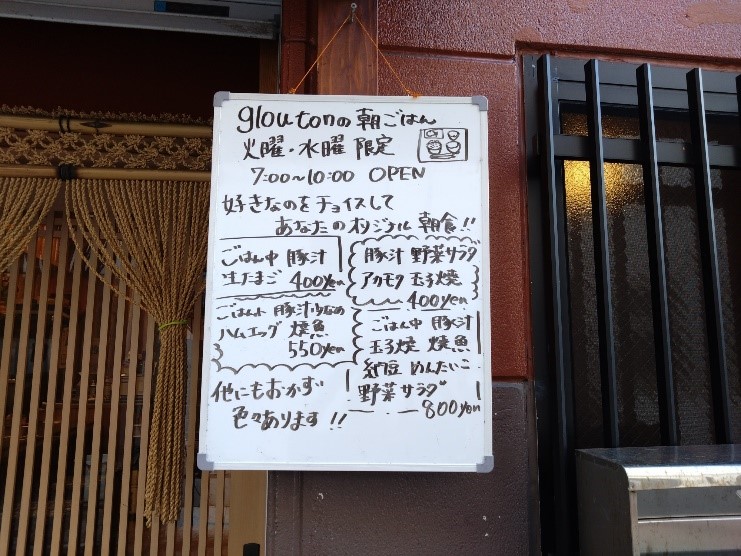 gloutonの朝ごはん
火曜・水曜 限定
7:00〜10:00 OPEN
好きなのをチョイスして
あなたのオリジナル 朝食!!
ごはん中 豚汁
生たまご 400yen
豚汁 野菜サラダ
アカモク 玉子焼
400yen
ごはん小 豚汁少なめ
ハムエッグ 焼魚
550yen
ごはん中 豚汁
玉子焼 焼魚
納豆 めんたいこ
野菜サラダ
800yen
他にもおかず
色々あります!!